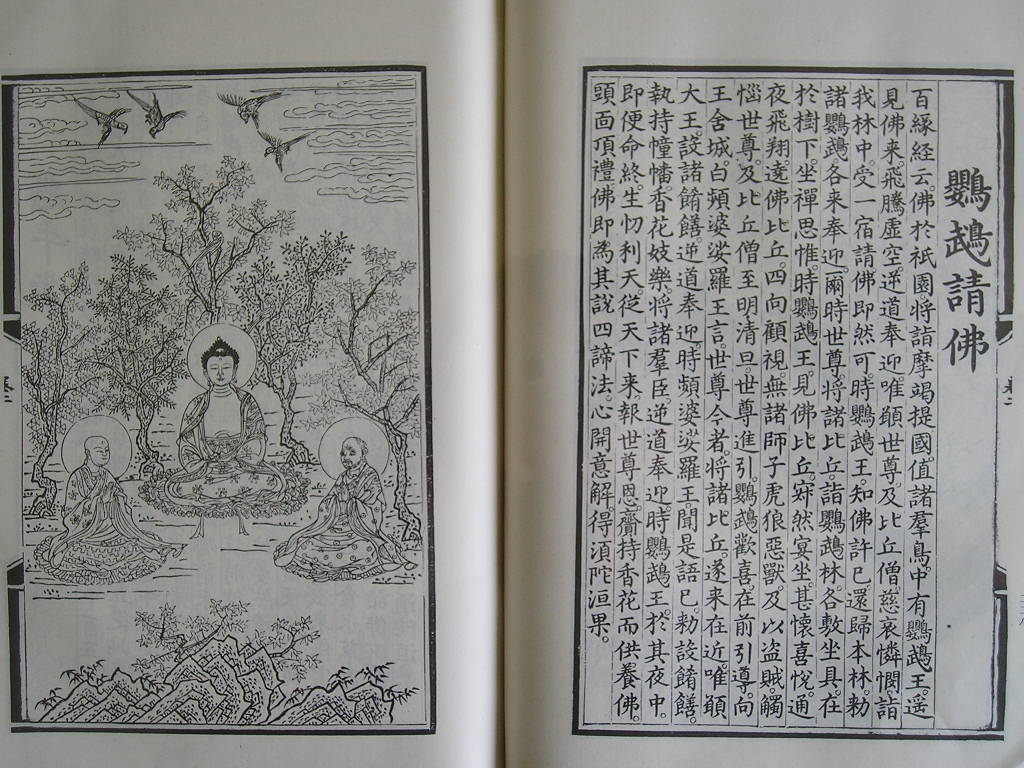 鸚鵡請佛
百緣經云。佛於祇園將詣摩竭提國。值諸羣鳥。中有鸚鵡王。遥
見佛来。飛騰虚空。逆道奉迎。唯願世尊。及比丘僧。慈哀憐憫。詣
我林中。受一宿請。佛即然可。時鸚鵡王。知佛許已。還歸本林。勑
諸鸚鵡。各来奉迎。爾時世尊。將諸比丘。詣鸚鵡林。各敷坐具。在
於樹下。坐禪思惟。時鸚鵡王。見佛比丘。寂然宴坐。甚懷喜悅。通
夜飛翔。遶佛比丘。四向顧視。無諸師子虎狼惡獸。及以盜賊。觸
惱世尊。及比丘僧。至明清旦。世尊進引。鸚鵡歡喜。在前引導。向
王舍城。白頻婆娑羅王言。世尊今者。將諸比丘。遂来在近。唯願
大王。設諸餚饍。逆道奉迎。時頻婆娑羅王。聞是語已。勑設餚饍。
執持幢幡。香花妓樂。將諸羣臣。逆道奉迎。時鸚鵡王。於其夜中。
即便命終。生忉利天。從天下来。報世尊恩。齎持香花。而供養佛。
頭面頂禮。佛即為其說四諦法。心開意解。得須陀洹果。
卷二